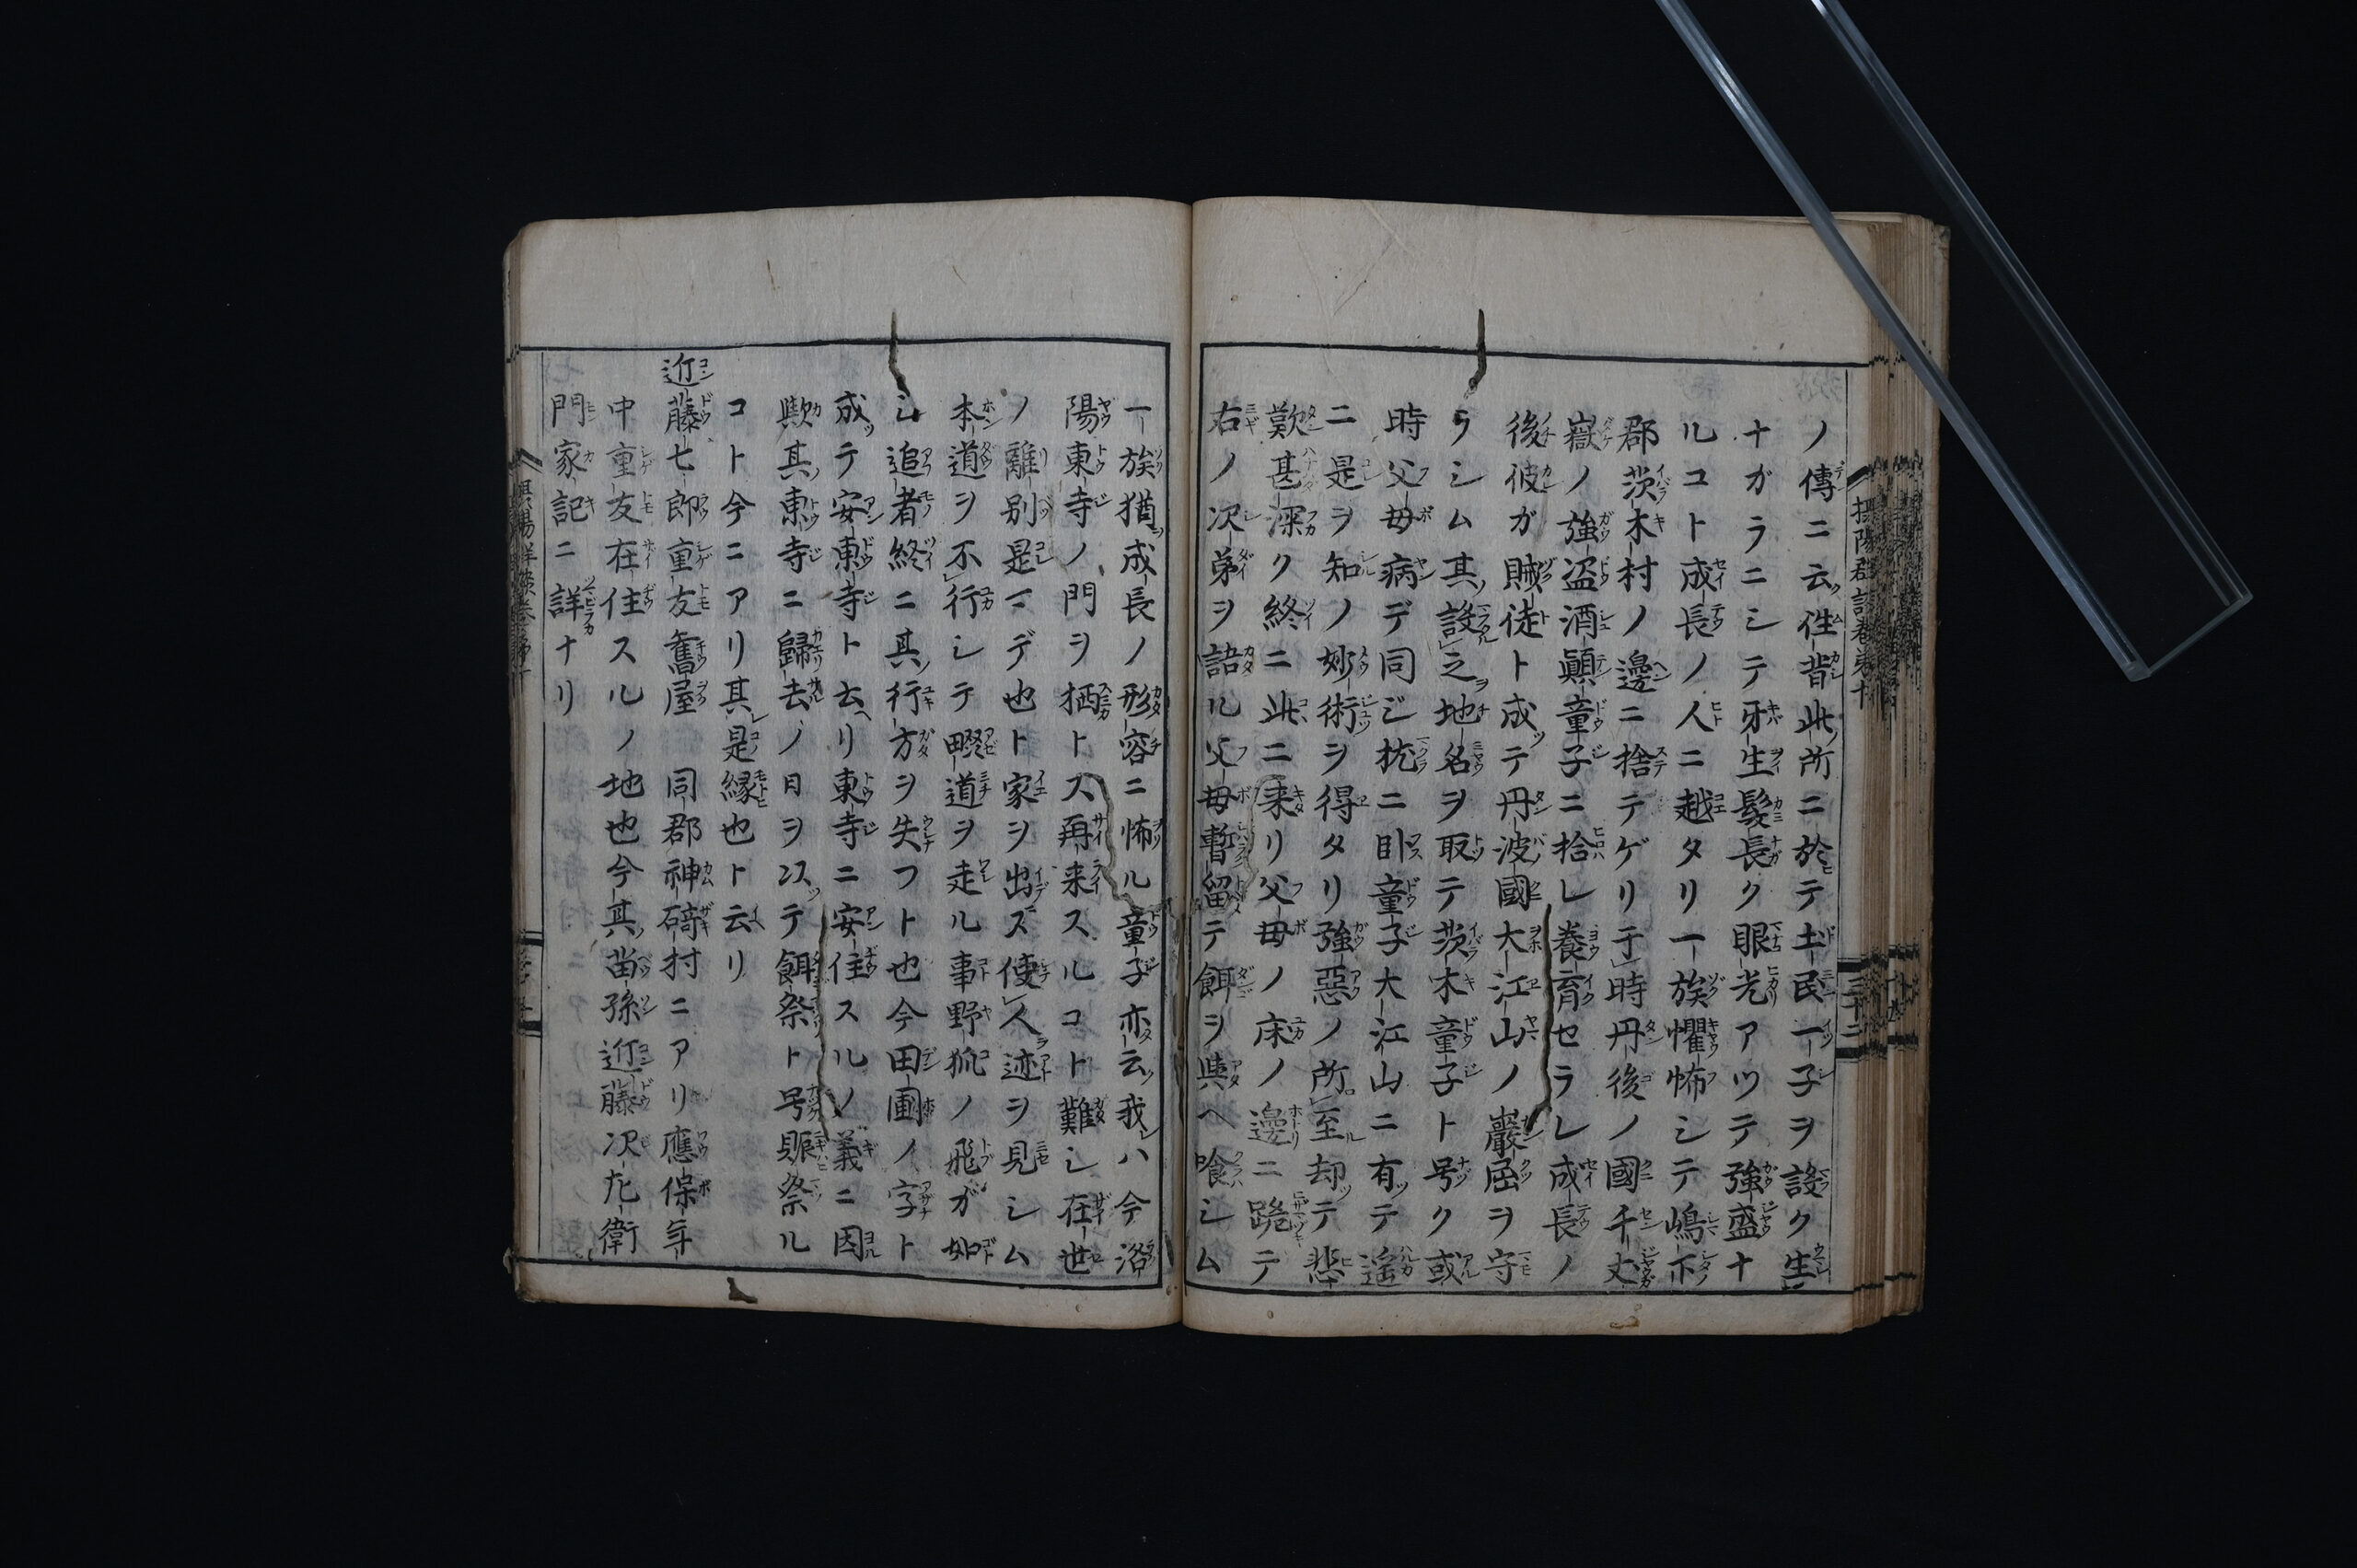 ノ傳ニ云性昔此所ニ於テ土民一子ヲ設ク生
ナガラニシテ牙生髮長ク眼光アツテ強盛ナ
ルコト成長ノ人ニ越タリ一族懼怖シテ嶋下
郡茨木村ノ邊ニ捨テゲリ于時丹後ノ國千丈
嶽ノ強盗酒顚童子ニ拾レ養育セラレ成長ノ
後彼ガ賊徒ト成テ丹波國大江山ノ巖屈ヲ守
ラシム其設之地名ヲ取テ茨木童子ト号ク或
時父母病デ同ジ枕ニ臥ス童子大江山ニ有テ遥
ニ是ヲ知ノ妙術ヲ得タリ強惡ノ所至却テ悲
歎甚深ク終ニ此ニ来リ父母ノ床ノ邊ニ跪テ
右ノ次弟ヲ語ル父母暫留テ餌ヲ與ヘ喰シム
一族猶成長ノ形容ニ怖ル童子亦云我ハ今洛
陽東寺ノ門ヲ栖トス再来スルコト難シ在世
ノ離別是マデ也ト家ヲ出ズ使人迹ヲ見シム
本道ヲ不行シテ畷道ヲ走ル事野狐ノ飛ガ如
シ追者終ニ其行方ヲ失フト也今田圃ノ字ト
成テ安東寺ト云リ東寺ニ安住スルノ義ニ因
歟其東寺ニ歸去ノ日ヲ以テ餌祭ト号賑祭ル
コト今ニアリ其是縁也ト云リ
近藤七郎重友舊屋 同郡神﨑村ニアリ應保年
中重友在住スルノ地也今其苗孫近藤次左衛
門家記ニ詳ナリ
摂陽群談巻第十
三十二